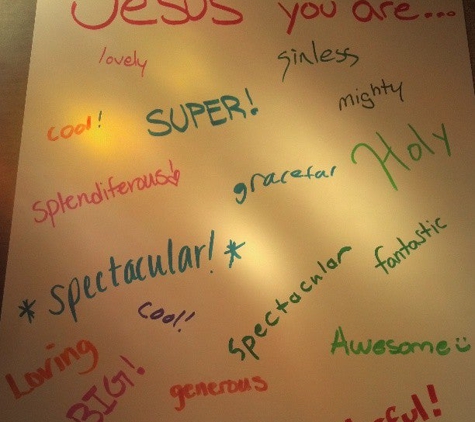 Jesus you are...
lovely
sinless
mighty
cool!
SUPER!
Holy
splendiferous
gracefar
fantastic
* spectacular! *
cool!
Spectacular
Awesome
Loving
BIG!
generous